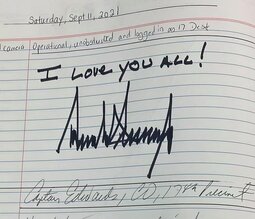 Saturday, Sept 11, 2021
camera Operational, unobstructed and logged in as 17 Desk
I LOVE YOU ALL!
Captain Edwards, CO, 17th Precinct